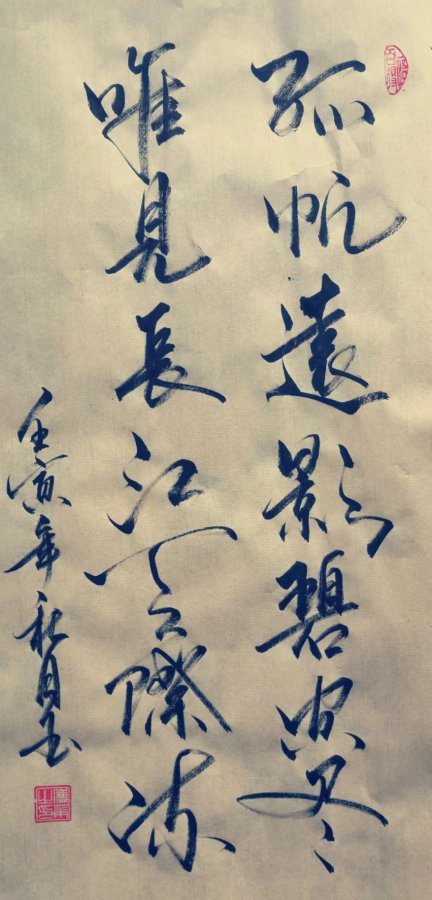 孤帆遠影碧空尽
唯見長江天際流
壬寅年秋月书